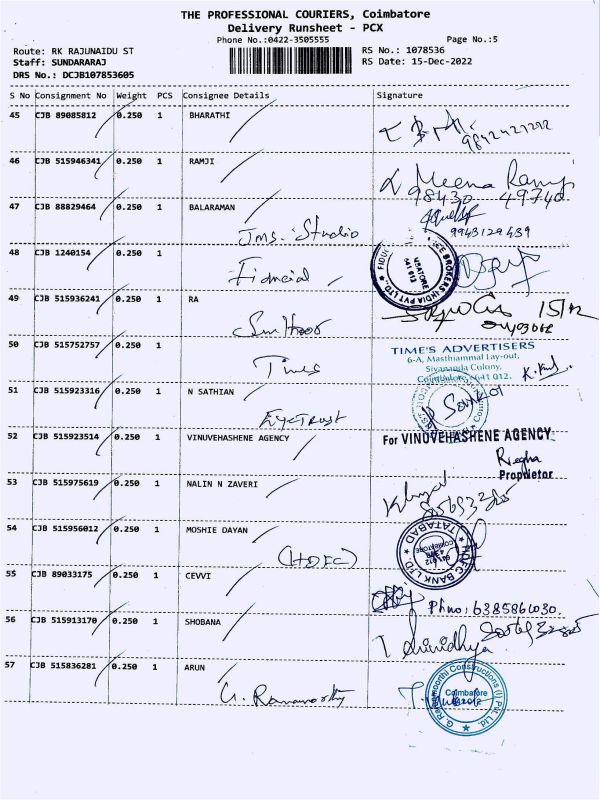 THE PROFESSIONAL COURIERS, Coimbatore
Delivery Runsheet - PCX
Phone No.:0422-3505555
Page No.:5
Route: RK RAJUNAIDU ST
RS No.: 1078536
Staff: SUNDARARAJ
RS Date: 15-Dec-2022
DRS No.: DCJB107853605
S No Consignment No Weight PCS Consignee Details Signature
45 CJB 89085812 0.250 1 BHARATHI
9842421292
46 CJB 515946341 0.250 1 RAMJI
Meena Ramji
98430 49740
47 CJB 88829464 0.250 1 BALARAMAN
Jms. Studio
9943129439
48 CJB 1240154 0.250 1
Financial
49 CJB 515936241 0.250 1 RA
15/12
50 CJB 515752757 0.250 1
Times
TIME'S ADVERTISERS
6-A, Masthiammal Lay-out,
Sivananda Colony,
Coimbatore - 641 012.
51 CJB 515923316 0.250 1 N SATHIAN
EyeTrust
52 CJB 515923514 0.250 1 VINUVEHASHENE AGENCY
For VINUVEHASHENE AGENCY
Regha
Proprietor
53 CJB 515975619 0.250 1 NALIN N ZAVERI
54 CJB 515956012 0.250 1 MOSHIE DAYAN
(HDFC)
HDFC BANK LTD. TATABAD
COIMBATORE
55 CJB 89033175 0.250 1 CEVVI
Ph no: 6385866030.
56 CJB 515913170 0.250 1 SHOBANA
57 CJB 515836281 0.250 1 ARUN
G. Ramamorthy
G Ramamoorthi Constructions (I) Pvt. Ltd.
Coimbatore